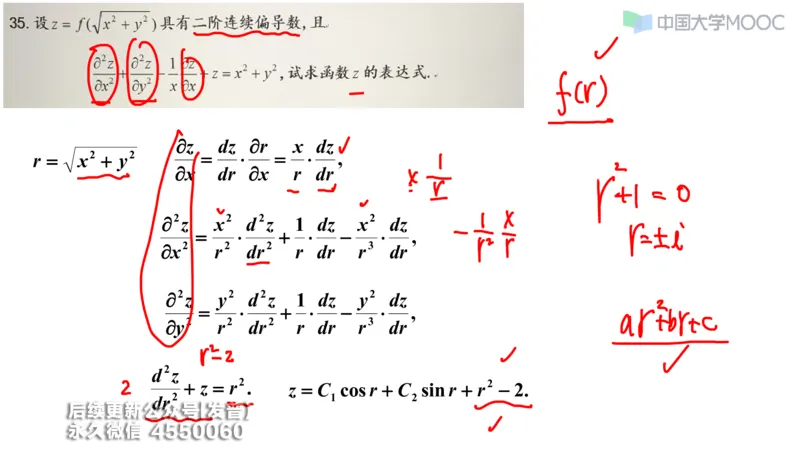 中国大学MOOC
35. 设 z = f(√(x² + y²)) 具有二阶连续偏导数, 且
∂²z/∂x² + ∂²z/∂y² − 1/x ∂z/∂x + z = x² + y², 试求函数 z 的表达式.
f(r)
r = √(x² + y²)
∂z/∂x = dz/dr · ∂r/∂x = x/r · dz/dr,
x 1/r
∂²z/∂x² = x²/r² · d²z/dr² + 1/r · dz/dr − x²/r³ · dz/dr,
− 1/r² x/r
r²+1=0
r=±i
∂²z/∂y² = y²/r² · d²z/dr² + 1/r · dz/dr − y²/r³ · dz/dr,
ar²+br+c
r²-2
2
d²z/dr² + z = r².
z = C₁ cos r + C₂ sin r + r² − 2.
后续更新公众号[发普]
永久微信 4550060